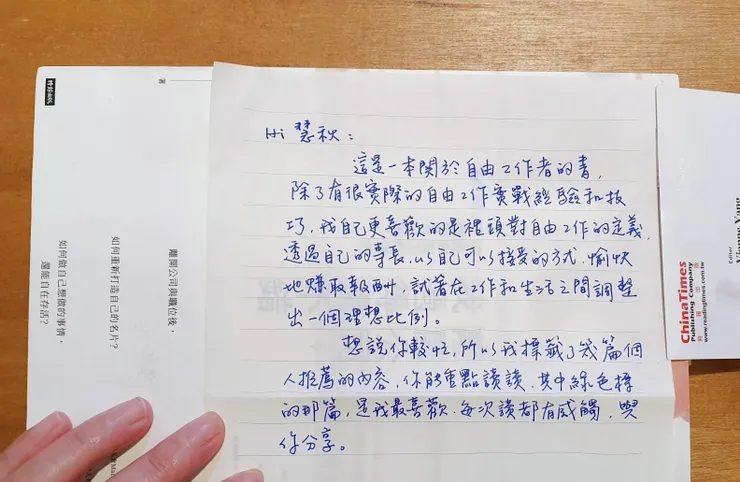 Hi 慧秋：
這是一本關於自由工作者的書，
除了有很實際的自由工作實戰經驗和技
巧，我自己更喜歡的是裡頭對自由工作的定義，
透過自己的專長，以自己可以接受的方式，愉快
地賺取報酬，試著在工作和生活之間調整
出一個理想比例。
想說你較忙，所以我標籤了幾篇個
人推薦的內容，你能重點讀讀，其中綠色標
的那篇，是我最喜歡，每次讀都有感觸，與
你分享。
離開公司與職位後，
如何重新打造自己的名片？
如何做自己想做的事情，
還能自在存活？
著
時報出版
ChinaTimes
Publishing Company
www.readingtimes.com.tw
Editor
Yang